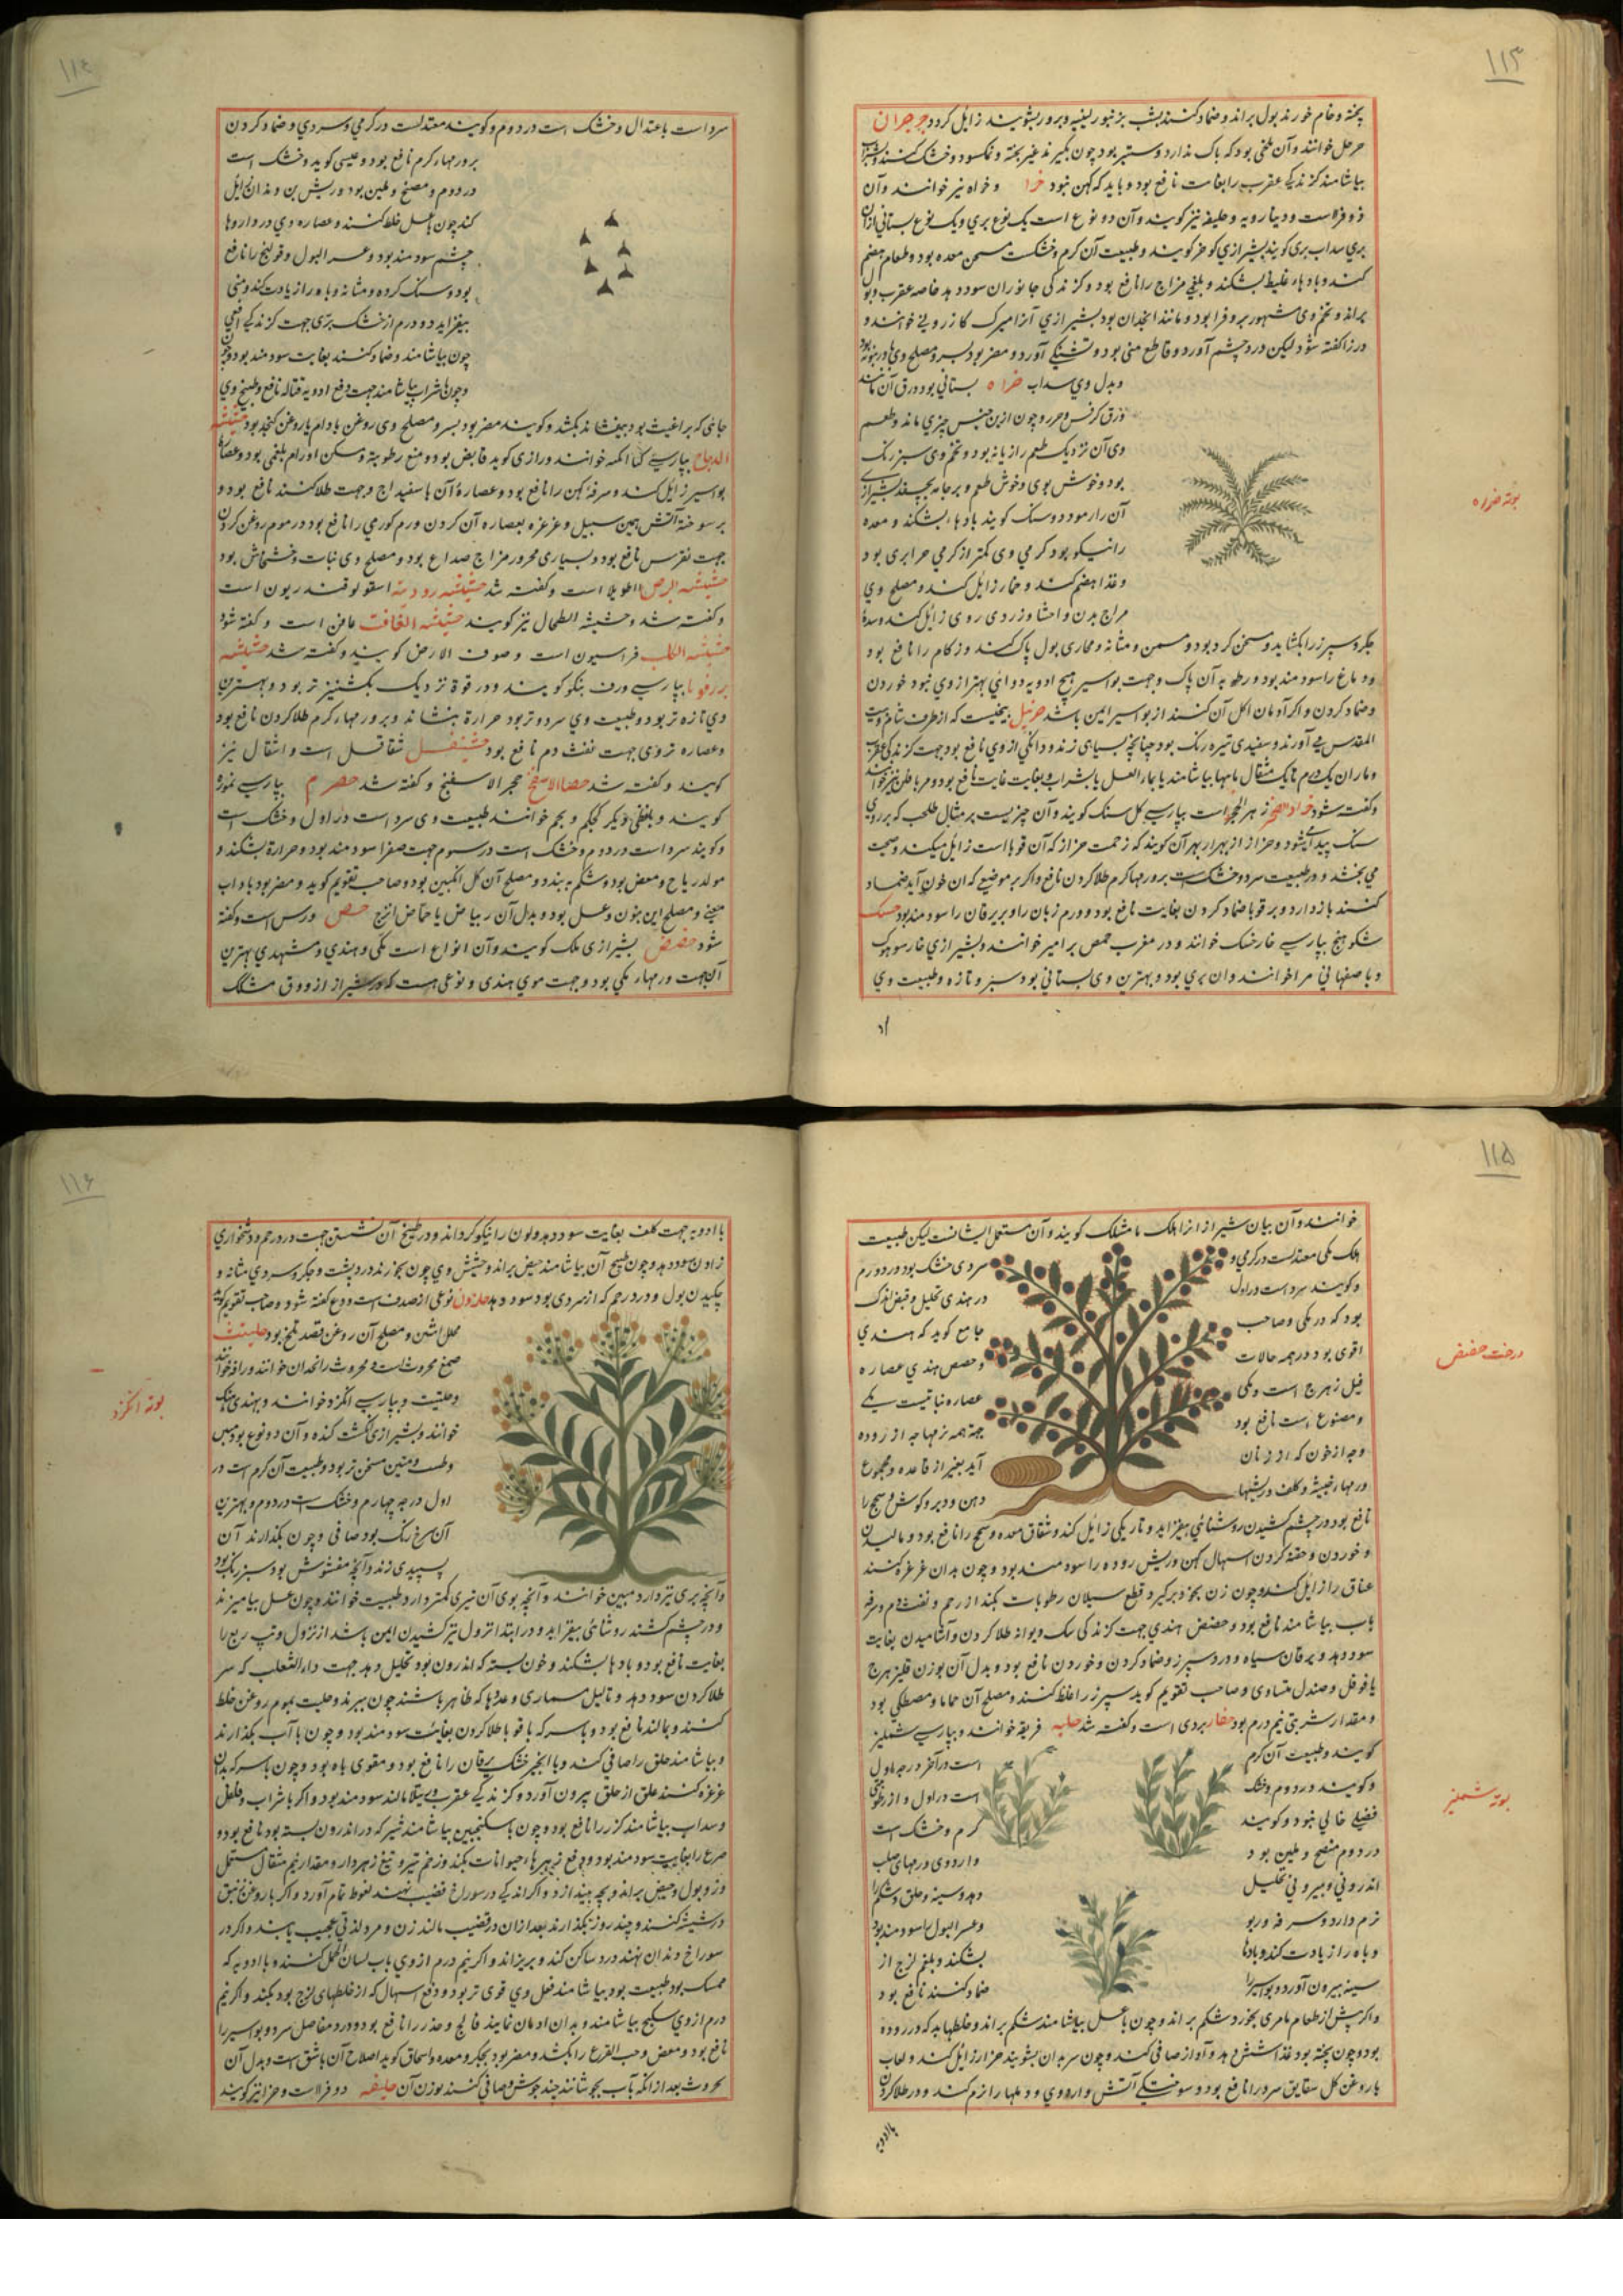 ۱۱۳
پخته و خام خورند بول براند و ضماد کنند زایل کردد جرجران
حرمل خوانند و آن بلخی بود که باک ندارد و ستبر بود چون بکیرند غیر پخته و نمکسود و خشک کنند و بشراب
بیاشامند کزندکی عقرب را بغایت نافع بود و باید که کهن نبود حزا و خزاه نیز خوانند و آن
زوفراست و دینارویه و حلیفه نیز کویند و آن دو نوع است یک نوع بری و یک نوع بستانی از آن
بری سداب بری کویند بشیرازی کوهر کویند و طبیعت آن کرم و خشکست مسخن معده بود و طعام هضم
کند و بادهاء غلیظ بشکند و بلغمی مزاج را نافع بود و کزندکی جانوران سود دهد خاصه عقرب و بول
براند و تخم وی مشهور بروفرا بود و مانند انجدان بود بشیرازی آنرا میرک کازرونی خوانند و
در زا کفته شود لیکن درد چشم آورد و قاطع منی بود و تشنکی آورد و مضر بود بسر و مصلح وی
و بدل وی سداب بستانی بود حزاه ورق آن مانند
ورق کرفس و جزر و چون ازین جنس چیزی ماند و طعم
وی آن نزدیک طعم رازیانه بود و تخم وی سبز رنک
بود و خوش بوی و خوش طعم و بر جامه بچسبد بشیراز
آن را رمودوسنک کویند بادها بشکند و معده
را نیکو بود کرمی وی کمتر از کرمی حزا بری بود
و غذا هضم کند و خمار زایل کند و مصلح وی
مزاج بدن و احشا و زردی روی زایل کند و سده
بوته حزاه
جکر و سپرز را بکشاید و مسخن کرده بود و مسمن و مثانه و مجاری بول پاک کند و زکام را نافع بود
و دماغ را سودمند بود و رطوبه آن پاک و جهت بواسیر هیچ ادویه دوائی بهتر از وی نبود خوردن
و ضماد کردن و اکر آدمان اکل آن کنند از بواسیر ایمن باشد حزنبل بیخیست که از طرف شام و بیت
المقدس می آورند و سفیدی تیره رنک بود چنانچه بسیاهی زند و دانکی از وی نافع بود جهت کزندکی عقرب
و ماران یک درم تا یک مثقال بیاشامند یا بماء العسل یا بشراب بغایت نافع بود
و کفته شود حزاز الصخر زهر الحجر است بپارسی کل سنک کویند و آن چیزیست بر مثال طحلب که بر روی
سنک پیدا شود و حزاز از بهر آن کویند که زحمت حزاز که آن قوبا است زایل میکند و صحت
می بخشد و در طبیعت سرد و خشک است بر ورمهاء کرم طلا کردن نافع و اکر بر موضعی که آن خون آید ضماد
کنند باز دارد و بر قوبا ضماد کردن بغایت نافع بود و ورم زبان را و یرقان را سودمند بود حسک
شکوهنج بپارسی خارخسک خوانند و در مغرب حمص برامیر خوانند و بشیرازی خارسوهک
و باصفهانی مراخوانند و آن بری بود و بهترین وی بستانی بود سبز و تازه و طبیعت وی
۱۱۴
سرد است باعتدال و خشک است در دوم و کویند معتدلست در کرمی و سردی و ضماد کردن
بر ورمهاء کرم نافع بود و عیسی کوید و خشک است
در دوم و منضج و ملین بود و ریش بن دندان زایل
کند چون باعسل خلط کنند و عصاره وی در داروها
چشم سودمند بود و عسر البول و قولنج را نافع
بود و سنک کرده و مثانه و باه را زیادت کند و منی
بیفزاید دو درم از خشک برّی جهت کزندکی افعی
چون بیاشامند و ضماد کنند بغایت سودمند بود
و چون با شراب بیاشامند جهت دفع ادویه قتاله نافع و طبیخ وی
جائی که براغیث بود بیفشانند بکشد و کویند مضر بود بسر و مصلح وی روغن بادام یا روغن کنجد بود حشیشه
الدجاج بپارسی خوانند و رازی کوید قابض بود و منع رطوبه و مسکن اورام بلغمی بود و عصاره
بواسیر زایل کند و سرفه کهن را نافع بود و عصاره آن با سفیداج و جهت طلا کنند نافع بود و
بر سوختهٔ آتش همین سبیل و غرغره بعصاره آن کردن ورم کورمی را نافع بود در موم روغن کردن
جهت نقرس نافع بود و بسیاری محرور مزاج صداع بود و مصلح وی نبات و خشخاش بود
حشیشه البرص اطویلا است و کفته شد حشیشه رودیه اسقولوقندریون است
و کفته شد و حشیشه الطحال نیز کویند حشیشه الغافت غافت است و کفته شود
حشیشه الکلب فراسیون است و صوف الارض کویند و کفته شد حشیشه
بپارسی ورق کویند و در قوة نزدیک بکشنیز تر بود و بهترین
وی تازه تر بود و طبیعت وی سرد و تر بود حرارة بنشاند و بر ورمهاء کرم طلا کردن نافع بود
و عصاره تر وی جهت نفث دم نافع بود حشنفیل شقاقل است و اشقال نیز
کویند و کفته شد حصا الاسفنج حجر الاسفنج و کفته شد حصرم بپارسی غوره
کویند و بلفظی دیکر کجکم و بجم خوانند طبیعت وی سرد است در اول و خشک است
و کویند سرد است در دوم و خشک است در سوم جهت صفرا سودمند بود و حرارة بشکند و
مولد ریاح و مغص بود و شکم ببندد و مصلح آن کل انکبین بود و صاحب تقویم کوید و مضر بود
و مصلح و عسل بود و بدل آن ریباس یا حماض اترج حص ورس است و کفته
شود حضض بشیرازی ملک کویند و آن انواع است مکی و هندی و مشهدی بهترین
آن جهت ورمهاء مکی بود و جهت موی هندی و نوعی هست که در شیراز از ورق مشلک
۱۱۵
خوانند و آن بیان شیراز از اهلک مامشلک کویند و آن مستعمل ایشانست لیکن طبیعت
اهلک مکی معتدلست در کرمی و سردی خشک بود در دوم
و کویند سرد است در اول در هندی تحلیل و قبض اندک
بود که در مکی و صاحب جامع کوید که هندی
اقوی بود در همه حالات و حضض هندی عصاره
فیل زهرج است و مکی عصاره نباتیست که
و مصنوع است نافع بود جهة همه نزفها چه از روده
و چه از خون که از زنان آید بغیر از قاعده و مجموع
ورمهاء خبیثه و کلف و ریشها دهن و دبر و کوش و سحج را
درخت حضض
نافع بود در چشم کشیدن روشنائی بیفزاید و تاریکی زایل کند و شقاق معده و سحج را نافع بود و مالیدن
و خوردن و حقنه کردن اسهال کهن و ریش روده را سودمند بود و چون بدان غرغره کنند
خناق را زایل کند و چون زن بخود برکیرد قطع سیلان رطوبات بکند از رحم و نفث دم و سرفه
بآب بیاشامند نافع بود و حضض هندی جهت کزندکی سک دیوانه طلا کردن و آشامیدن بغایت
سود دهد و یرقان سیاه و درد سپرز و ضماد کردن و خوردن نافع بود و بدل آن بوزن فیلزهرج
یا فوفل و صندل متساوی و صاحب تقویم کوید سپرز را غلظ کنند و مصلح آن حماما و مصطکی بود
و مقدار شربتی نیم درم بود حفار بردی است و کفته شد حلبه فریقه خوانند و بپارسی شنملیز
کویند و طبیعت آن کرم است در آخر درجه اول
و کویند در دوم و خشک است در اول و از رطوبتی
فضلی خالی نبود و کویند کرم و خشک است
در دوم منضج و ملین بود و از وی ورمهای صلب
اندرونی و بیرونی تحلیل دهد و سینه و حلق و شکم را
نرم دارد و سرفه و ربو و عسر البول را سودمند بود
و باه را زیادت کند و بادها بشکند و بلغم لزج از
سینه بیرون آورد و بواسیر را ضماد کنند نافع بود
بوته شنملیز
و اکر پیش از طعام بامری بخورند شکم براند و چون باعسل بیاشامند شکم براند و خلطها بد که در روده
بود و چون پخته بود غذا شش دهد و آواز صافی کند و چون سر بدان بشویند حزاز زایل کند و لعاب
با روغن کل شقاق سرد را نافع بود و سوختکی آتش و از وی و دملها را نرم کند و در طلا کردن
باادویه
۱۱۶
باادویه جهت کلف بغایت سود دهد و لون را نیکو کرداند و در طبیخ آن نشستن جهت درد رحم و دشخواری
زادن سود دهد و چون طبیخ آن بیاشامند حیض براند و حشیش وی چون بخورند درد پشت و جکر و سردی مثانه و
چکیدن بول و درد رحم که از سردی بود سود دهد حلزون نوعی از صدف است و ودع کفته شود و صاحب تقویم کوید
محلل است و مصلح آن روغن بود حلتیت
صمغ محروث است و محروث را انجدان خوانند
و حلتیث و بپارسی انکزد خوانند و بهندی هنک
خوانند و بشیرازی انکشت کنده و آن دو نوع بود
و طیب و منتن مسخن تر بود و طبیعت آن کرم است در
اول درجه چهارم و خشک است در دوم و بهترین
آن سرخ رنک بود صافی و چون بکدازند آن
بسپیدی زند و آنچه مغشوش بود سبز رنک بود
بوته انکزد
و آنچه بری تیز دارد منتن خوانند و آنچه بوی آن تیزی کمتر دارد طیب خوانند و چون عسل بیامیزند
و در چشم کشند روشنائی بیفزاید و در ابتدا نزول کشیدن ایمن باشد از نزول و تب ربع را
بغایت نافع بود و بادها بشکند و خون بسته که اندرون بود تحلیل دهد جهت داء الثعلب که سر
طلا کردن سود دهد و ثآلیل مسماری و غدها که ظاهر باشند چون ببرند و حلتیت بموم روغن خلط
کنند و بمالند نافع بود و باسرکه باقوبا طلا کردن بغایت سودمند بود و چون باآب بکدازند
و بیاشامند حلق را صافی کند و باانجیر خشک یرقان را نافع بود و مقوی باه بود و چون باسرکه بدان
غرغره کنند علق از حلق بیرون آورد و کزندکی عقرب و رتیلا مالند سودمند بود و اکر باشراب و فلفل
و سداب بیاشامند کزاز را نافع بود و چون باسکنجبین بیاشامند شیر که در اندرون بسته بود نافع بود و
صرع را بغایت سودمند بود و دفع زهرهاء حیوانات بکند و زخم تیر و تیغ زهردار و مقدار نیم مثقال مستعمل
و بول و حیض براند و بچه بیندازد و اکر اندکی در سوراخ قضیب نهند نعوظ تمام آورد و اکر با روغن زنبق
در شیشه کنند و چند روز بکذارند بعد از آن در قضیب مالند زن و مرد لذتی عجیب یابند و اکر در
سوراخ دندان نهند درد ساکن کند و بریزاند و اکر نیم درم از وی بآب لسان الحمل کنند و باادویه که
ممسک بود طبیعت بود بیاشامند فعل وی قوی تر بود و دفع اسهال که از خلطهای لزج بود بکند و اکر نیم
درم از وی بسکنج بیاشامند و بدان ادمان نمایند فالج و خدر را نافع بود و درد مفاصل سرد و بواسیر را
نافع بود و مغص و حب القرع را بکشد و مضر بود بجکر و معده و اسحاق کوید اصلاح آن باشق است و بدل آن
محروث بعد از آنکه بآب بجوشانند چند جوش و صافی کنند بوزن آن حلیفه دوفراست و حزا نیز کویند